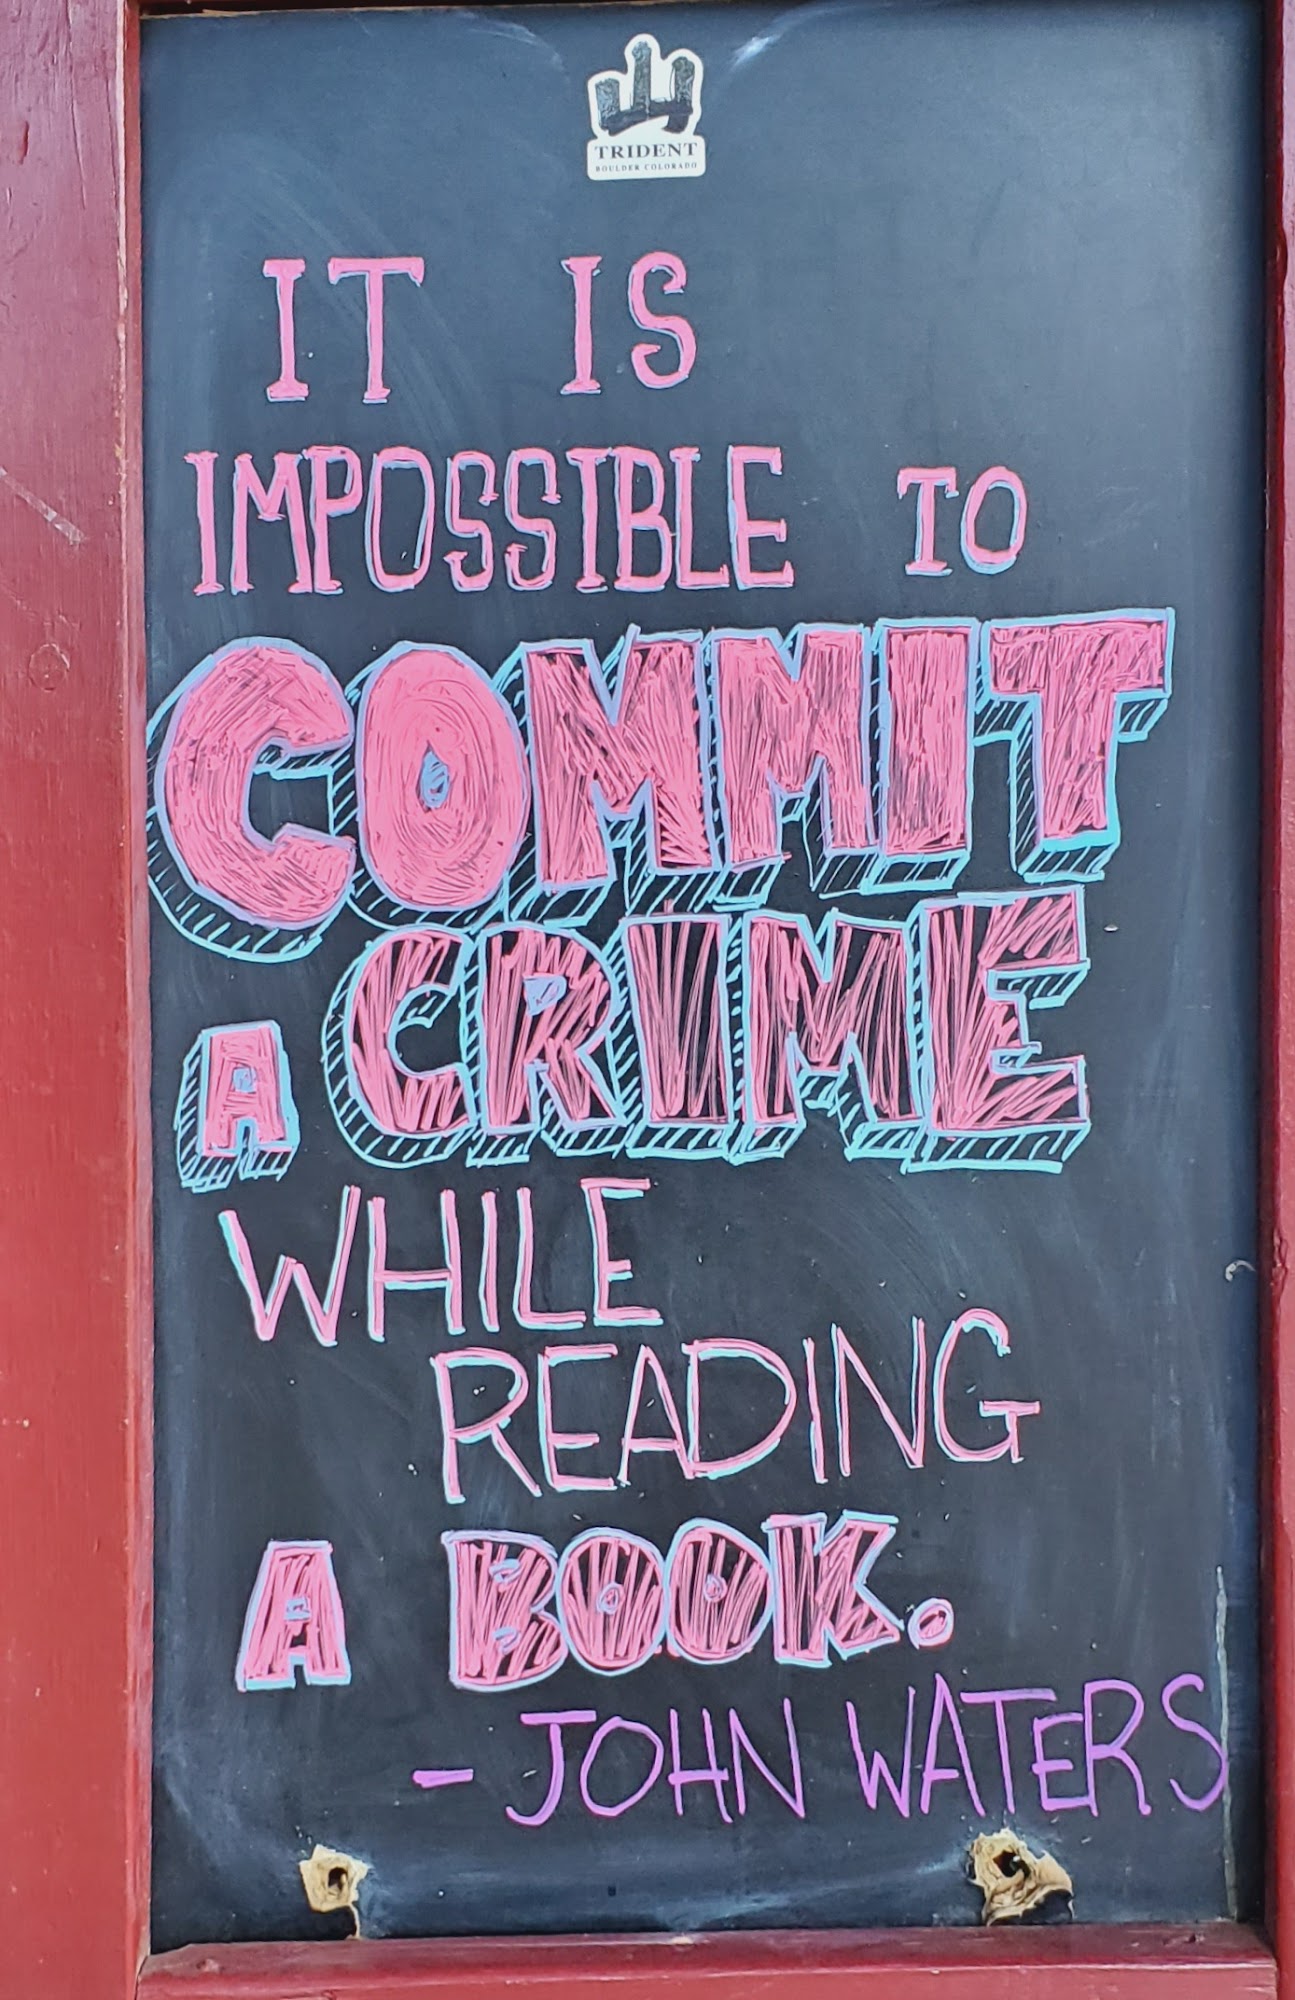 TRIDENT
BOULDER COLORADO
IT IS
IMPOSSIBLE TO
COMMIT
A CRIME
WHILE
READING
A BOOK.
- JOHN WATERS